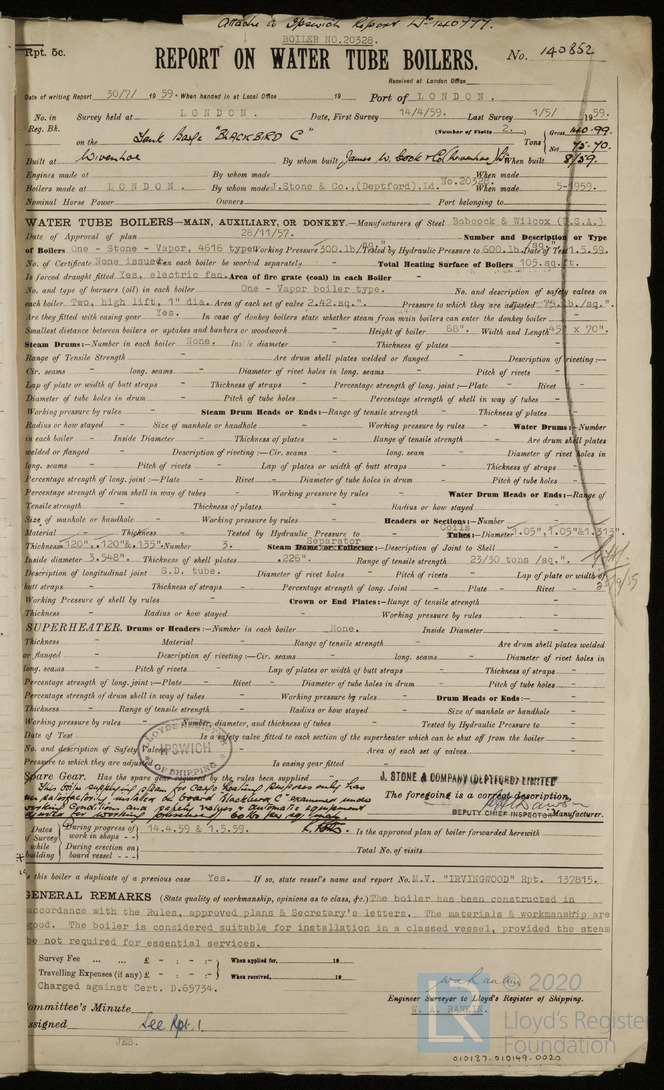 Attache to Ipswich Report No 140777.
BOILER NO.20328.
Rpt. 5c.
REPORT ON WATER TUBE BOILERS.
No. 140852
Received at London Office
Date of writing Report 30/7/ 1959. When handed in at Local Office 19 Port of LONDON.
No. in Reg. Bk. Survey held at LONDON. Date, First Survey 14/4/59. Last Survey 1/5/ 1959.
on the Tank Barge "BLACKBIRD C" (Number of Visits 2.) Tons Gross 140.99 Net 75.70
Built at Wivenhoe By whom built James W. Cook & Co (Wivenhoe) Ld When built 8/59.
Engines made at By whom made When made
Boilers made at LONDON. By whom made J.Stone & Co.,(Deptford),Ld. No.20328. When made 5-1959.
Nominal Horse Power Owners Port belonging to
WATER TUBE BOILERS—MAIN, AUXILIARY, OR DONKEY.—Manufacturers of Steel Babcock & Wilcox (U.S.A.)
Date of Approval of plan 28/11/57. Number and Description or Type
of Boilers One - Stone - Vapor, 4616 type. Working Pressure 300.lb/sq.". Tested by Hydraulic Pressure to 600.lb/sq.". Date of Test 1.5.59.
No. of Certificate None issued. Can each boiler be worked separately - Total Heating Surface of Boilers 105.sq.ft.
Is forced draught fitted Yes, electric fan. Area of fire grate (coal) in each Boiler -
No. and type of burners (oil) in each boiler One - Vapor boiler type. No. and description of safety valves on
each boiler Two, high lift, 1" dia. Area of each set of valves 2.42.sq.". Pressure to which they are adjusted 75.lb./sq.".
Are they fitted with easing gear Yes. In case of donkey boilers state whether steam from main boilers can enter the donkey boiler -
Smallest distance between boilers or uptakes and bunkers or woodwork - Height of boiler 68". Width and Length 45" x 70".
Steam Drums:—Number in each boiler None. Inside diameter - Thickness of plates -
Range of Tensile Strength - Are drum shell plates welded or flanged - Description of riveting:—
Cir. seams - long. seams - Diameter of rivet holes in long. seams - Pitch of rivets -
Lap of plate or width of butt straps - Thickness of straps - Percentage strength of long. joint:—Plate - Rivet -
Diameter of tube holes in drum - Pitch of tube holes - Percentage strength of shell in way of tubes -
Working pressure by rules - Steam Drum Heads or Ends:—Range of tensile strength - Thickness of plates -
Radius or how stayed - Size of manhole or handhole - Working pressure by rules - Water Drums:—Number
in each boiler - Inside Diameter - Thickness of plates - Range of tensile strength - Are drum shell plates
welded or flanged - Description of riveting:—Cir. seams - long. seam - Diameter of rivet holes in
long. seams - Pitch of rivets - Lap of plates or width of butt straps - Thickness of straps -
Percentage strength of long. joint:—Plate - Rivet - Diameter of tube holes in drum - Pitch of tube holes -
Percentage strength of drum shell in way of tubes - Working pressure by rules - Water Drum Heads or Ends:—Range of
Tensile strength - Thickness of plates - Radius or how stayed -
Size of manhole or handhole - Working pressure by rules - Headers or Sections:—Number -
Material - Thickness - Tested by Hydraulic Pressure to - Coils Tubes:—Diameter 1.05",1.05"&1.313".
Thickness .120",.120"&.135". Number 3. Steam Dome or Collector: Separator —Description of Joint to Shell -
Inside diameter 3.548". Thickness of shell plates .226". Range of tensile strength 23/30 tons /sq.".
Description of longitudinal joint S.D. tube. Diameter of rivet holes - Pitch of rivets - Lap of plate or width of
butt straps - Thickness of straps - Percentage strength of long. Joint - Plate - Rivet -
Working Pressure of shell by rules - Crown or End Plates:—Range of tensile strength -
Thickness - Radius or how stayed - Working pressure by rules -
SUPERHEATER. Drums or Headers:—Number in each boiler None. Inside Diameter -
Thickness - Material - Range of tensile strength - Are drum shell plates welded
or flanged - Description of riveting:—Cir. seams - long. seams - Diameter of rivet holes in
long. seams - Pitch of rivets - Lap of plates or width of butt straps - Thickness of straps -
Percentage strength of long. joint:—Plate - Rivet - Diameter of tube holes in drum - Pitch of tube holes -
Percentage strength of drum shell in way of tubes - Working pressure by rules - Drum Heads or Ends:—
Thickness - Range of tensile strength - Radius or how stayed - Size of manhole or handhole -
Working pressure by rules - Number, diameter, and thickness of tubes - Tested by Hydraulic Pressure to -
Date of Test - Is a safety valve fitted to each section of the superheater which can be shut off from the boiler -
No. and description of Safety Valves - Area of each set of valves -
Pressure to which they are adjusted - Is easing gear fitted -
LLOYD'S REGISTER OF SHIPPING IPSWICH
Spare Gear. Has the spare gear required by the rules been supplied
This boiler supplying steam for cargo heating purposes only has
been satisfactorily installed on board "Blackbird C" examined under
working conditions and safety valves & automatic equipment
J. STONE & COMPANY (DEPTFORD) LIMITED
The foregoing is a correct description,
DEPUTY CHIEF INSPECTOR Manufacturer.
Dates of Survey while building
During progress of work in shops - - 14.4.59 & 1.5.59. Is the approved plan of boiler forwarded herewith
During erection on board vessel - - - Total No. of visits
Is this boiler a duplicate of a previous case Yes. If so, state vessel's name and report No. M.V. "IRVINGWOOD" Rpt. 137815.
GENERAL REMARKS (State quality of workmanship, opinions as to class, &c.) The boiler has been constructed in
accordance with the Rules, approved plans & Secretary's letters. The materials & workmanship are
good. The boiler is considered suitable for installation in a classed vessel, provided the steam
be not required for essential services.
Survey Fee ... ... £ - : - :- When applied for, 19
Travelling Expenses (if any) £ - : - :- When received, 19
Charged against Cert. D.65734.
Engineer Surveyor to Lloyd's Register of Shipping.
W. A. RANKIN.
Committee's Minute
Assigned See Rpt. 1.
JEB.
LR © 2020
Lloyd's Register
Foundation
010137-010149-0020